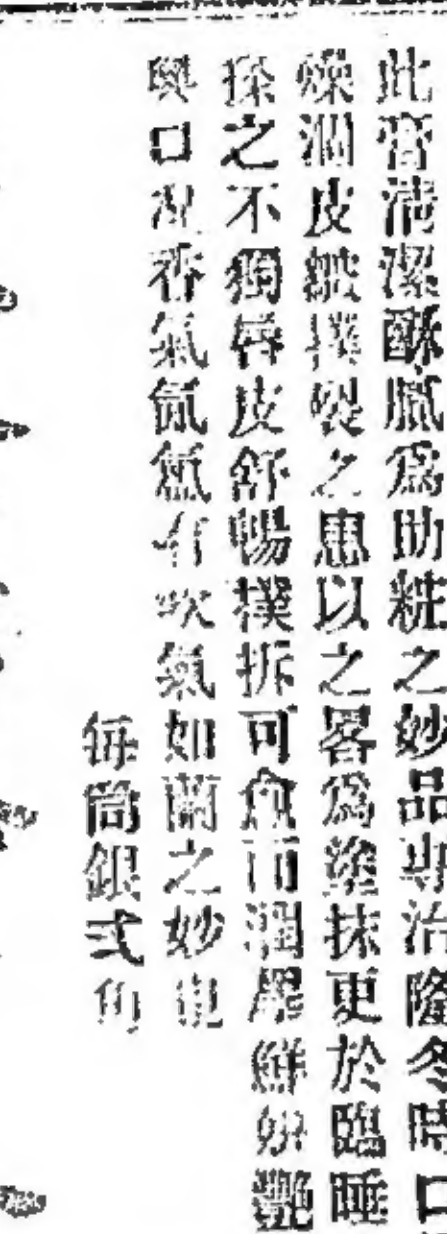 此膏清潔酥膩為助粧之妙品專治隆冬時口
燥涸皮皴撲裂之患以之畧為塗抹更於臨睡
搽之不獨唇皮舒暢撲拆可愈而潤犀鮮妍艷
與口況香氣氤氳有吹氣如蘭之妙也
每筒銀弍角